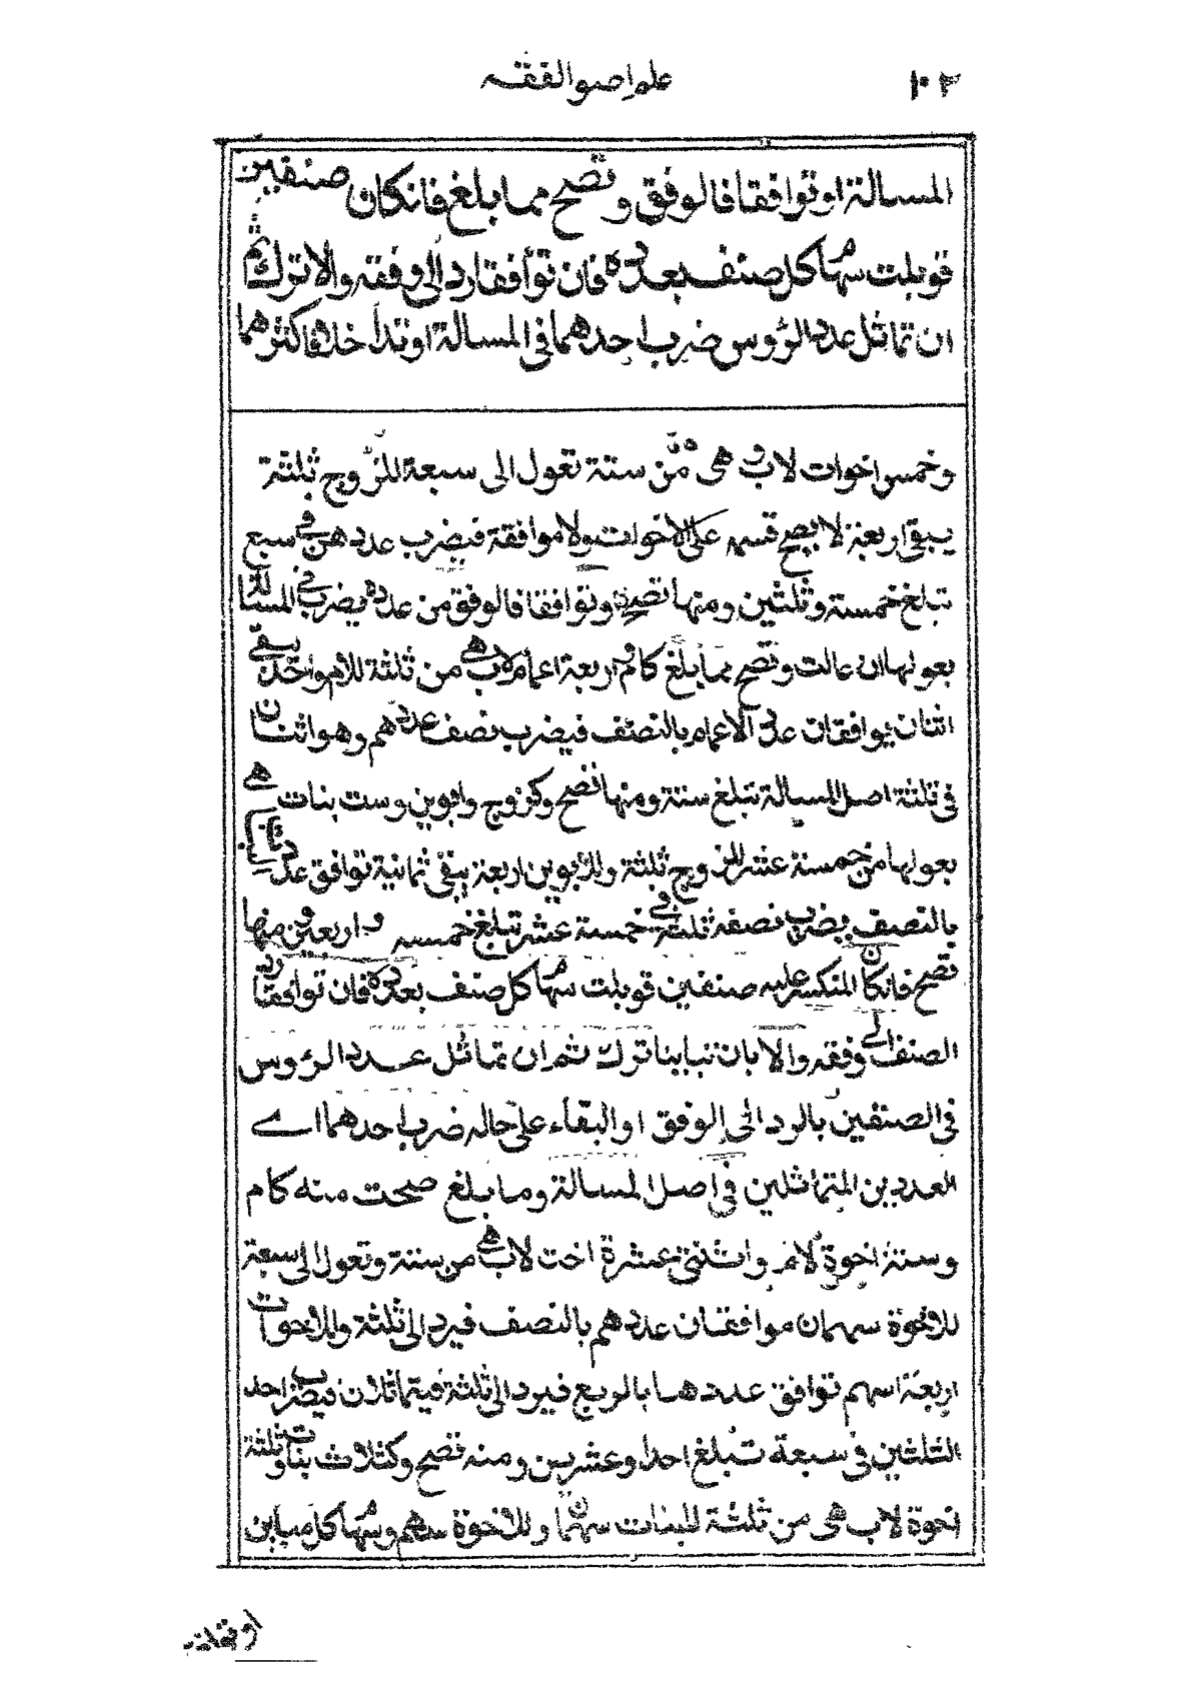 ١٠٢ علم اصوالفقه
المسالة اوتوافقا فالوفق وتصح مما بلغ فانكان صنفين
قوبلت سهام كل صنف بعدده فان توافقا رد الى وفقه والا ترك ثم
ان تماثل عدد الرؤوس ضرب احدهما فى المسالة اوتداخلا فاكثرهما
وخمس اخوات لاب هى من ستة تعول الى سبعة للزوج ثلثة
يبقى اربعة لا يصح قسمه على الاخوات ولا موافقة فيضرب عددهن فى سبع
تبلغ خمسة وثلثين ومنها تصح وتوافقا فالوفق من عدده يضرب فى المسالة
بعولها ان عالت وتصح مما بلغ كام واربعة اعمام لاب هى من ثلثة للام واحد يبقى
اثنان يوافقان عدد الاعمام بالنصف فيضرب نصف عددهم وهو اثنان
فى ثلثة اصل المسالة تبلغ ستة ومنها تصح وكزوج وابوين وست بنات هى
بعولها من خمسة عشر للزوج ثلثة وللابوين اربعة يبقى ثمانية توافق عدد
بالنصف يضرب نصفه ثلثة فى خمسة عشر تبلغ خمسه واربعين ومنها
تصح فانكان المنكسر عليه صنفين قوبلت سهام كل صنف بعدده فان توافقا رد
الصنف الى وفقه والا بان تباينا ترك ثم ان تماثل عدد الرؤوس
فى الصنفين بالرد الى الوفق او البقاء على حاله ضرب احدهما اے
العددين المتماثلين فى اصل المسالة وما بلغ صحت منه كام
وستة اخوة لام واثنتى عشرة اخت لاب هى من ستة وتعول الى سبعة
للاخوة سهمان موافقان عددهم بالنصف فيرد الى ثلثة وللاخوات
اربعة اسهم توافق عددها بالربع فيرد الى ثلثة فيتماثلان فيضرب احد
الثلثين فى سبعة تبلغ احدا وعشرين ومنه تصح وكثلاث بنات وثلثة
اخوة لاب هى من ثلثة للبنات سهمان وللاخوة سهم وسهام كل مباين